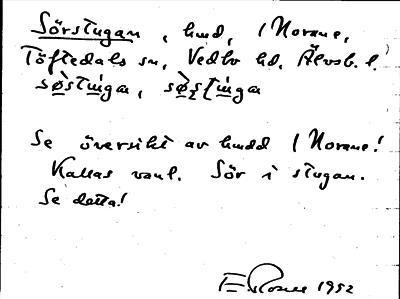 Sörstugan, hmd, 1 Norane,
Töftedals sn, Vedbo hd. Älvsb. l.
sø̀stınga, sø̀sṭınga
Se översikt av hmdd 1 Norane!
Kallas vanl. Sör i stugan.
Se detta!
E. Rosell 1952